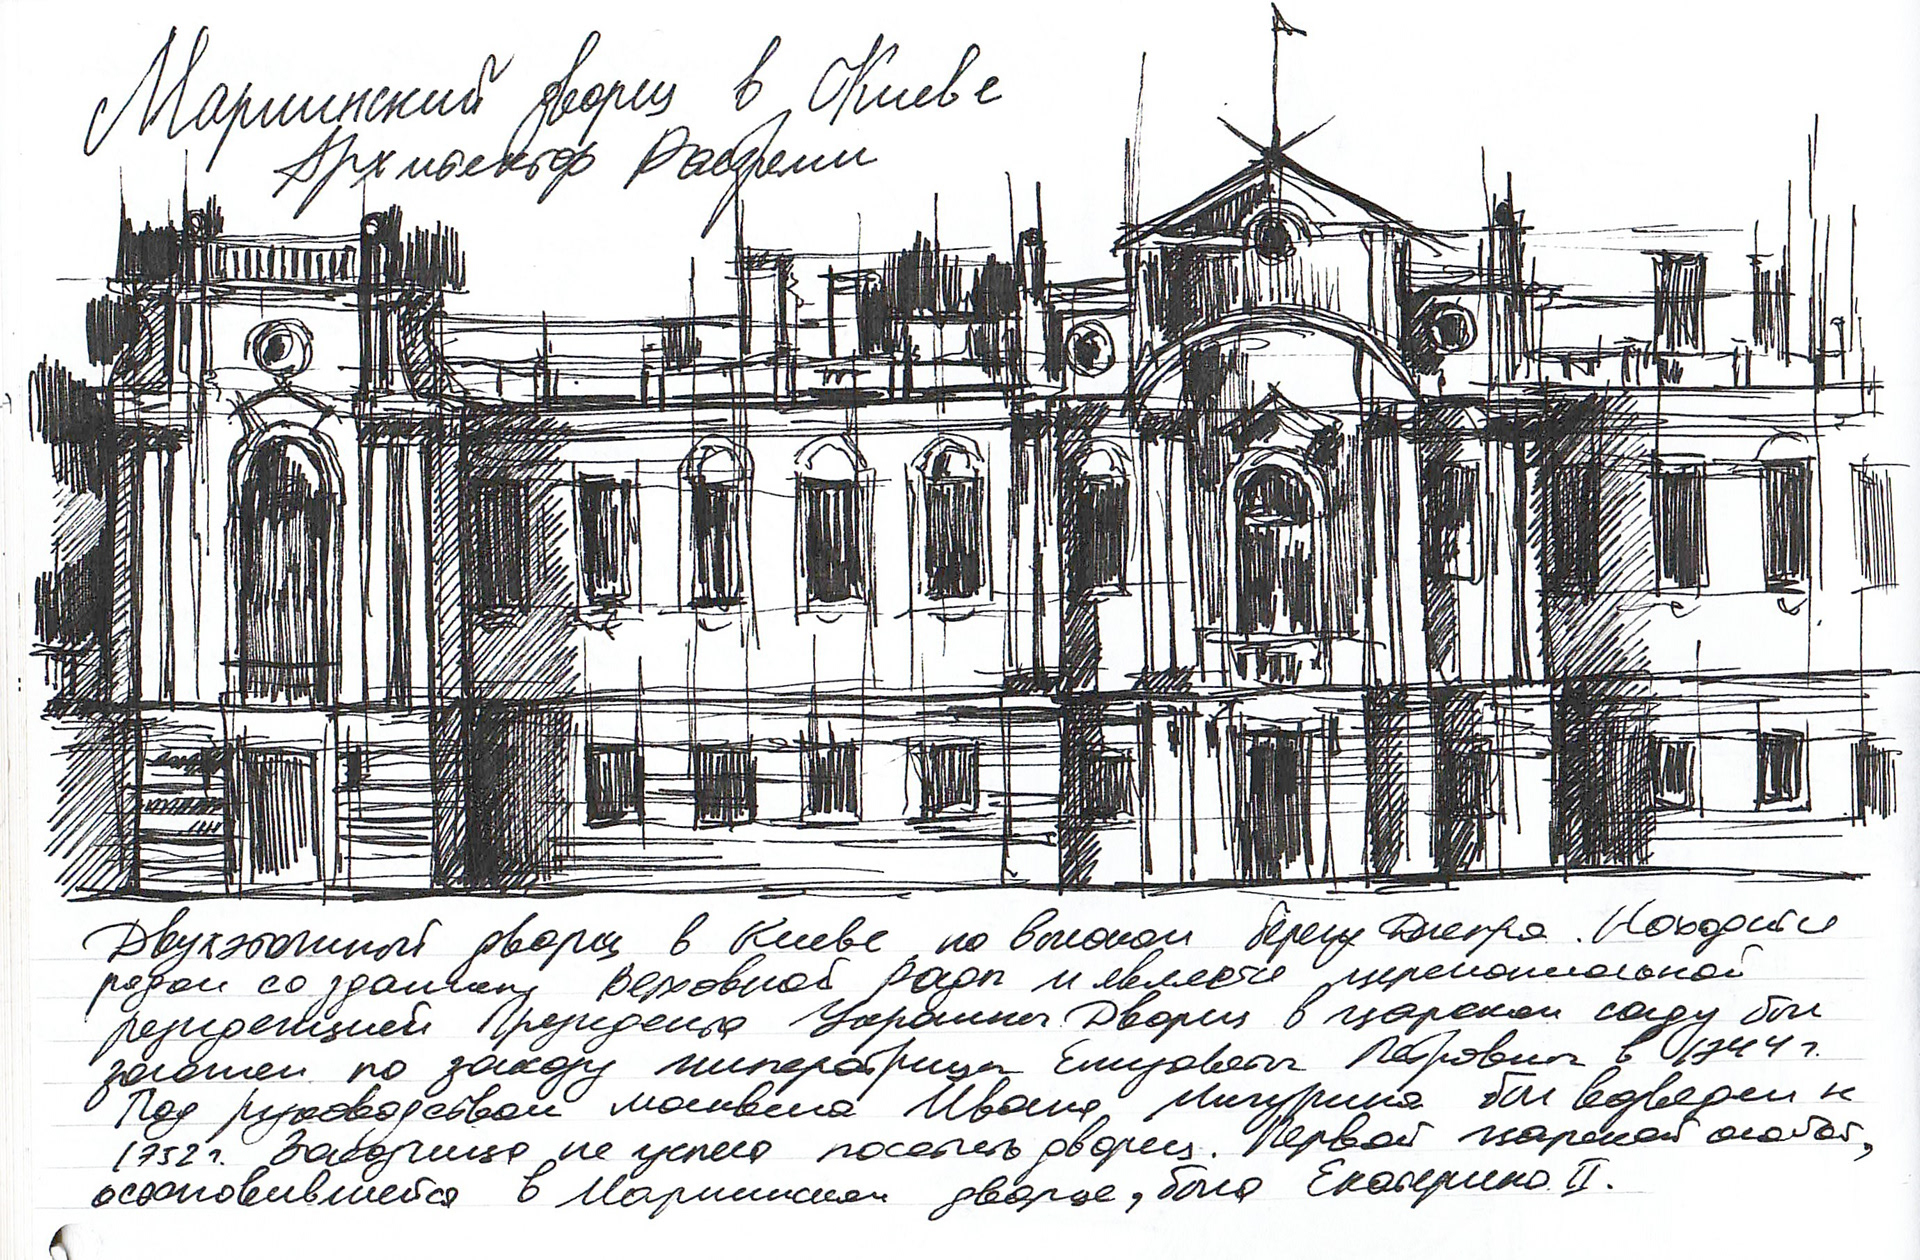 Мариинский дворец в Киеве
Архитектор Растрелли
Двухэтажный дворец в Киеве на высоком берегу Днепра. Находится
рядом со зданием Верховной Рады и является церемониальной
резиденцией Президента Украины. Дворец в царском саду был
заложен по заказу императрицы Елизаветы Петровны в 1744 г.
Под руководством москвича Ивана Мичурина был возведен к
1752 г. Заказчица не успела посетить дворец. Первой царской особой,
остановившейся в Мариинском дворце, была Екатерина II.